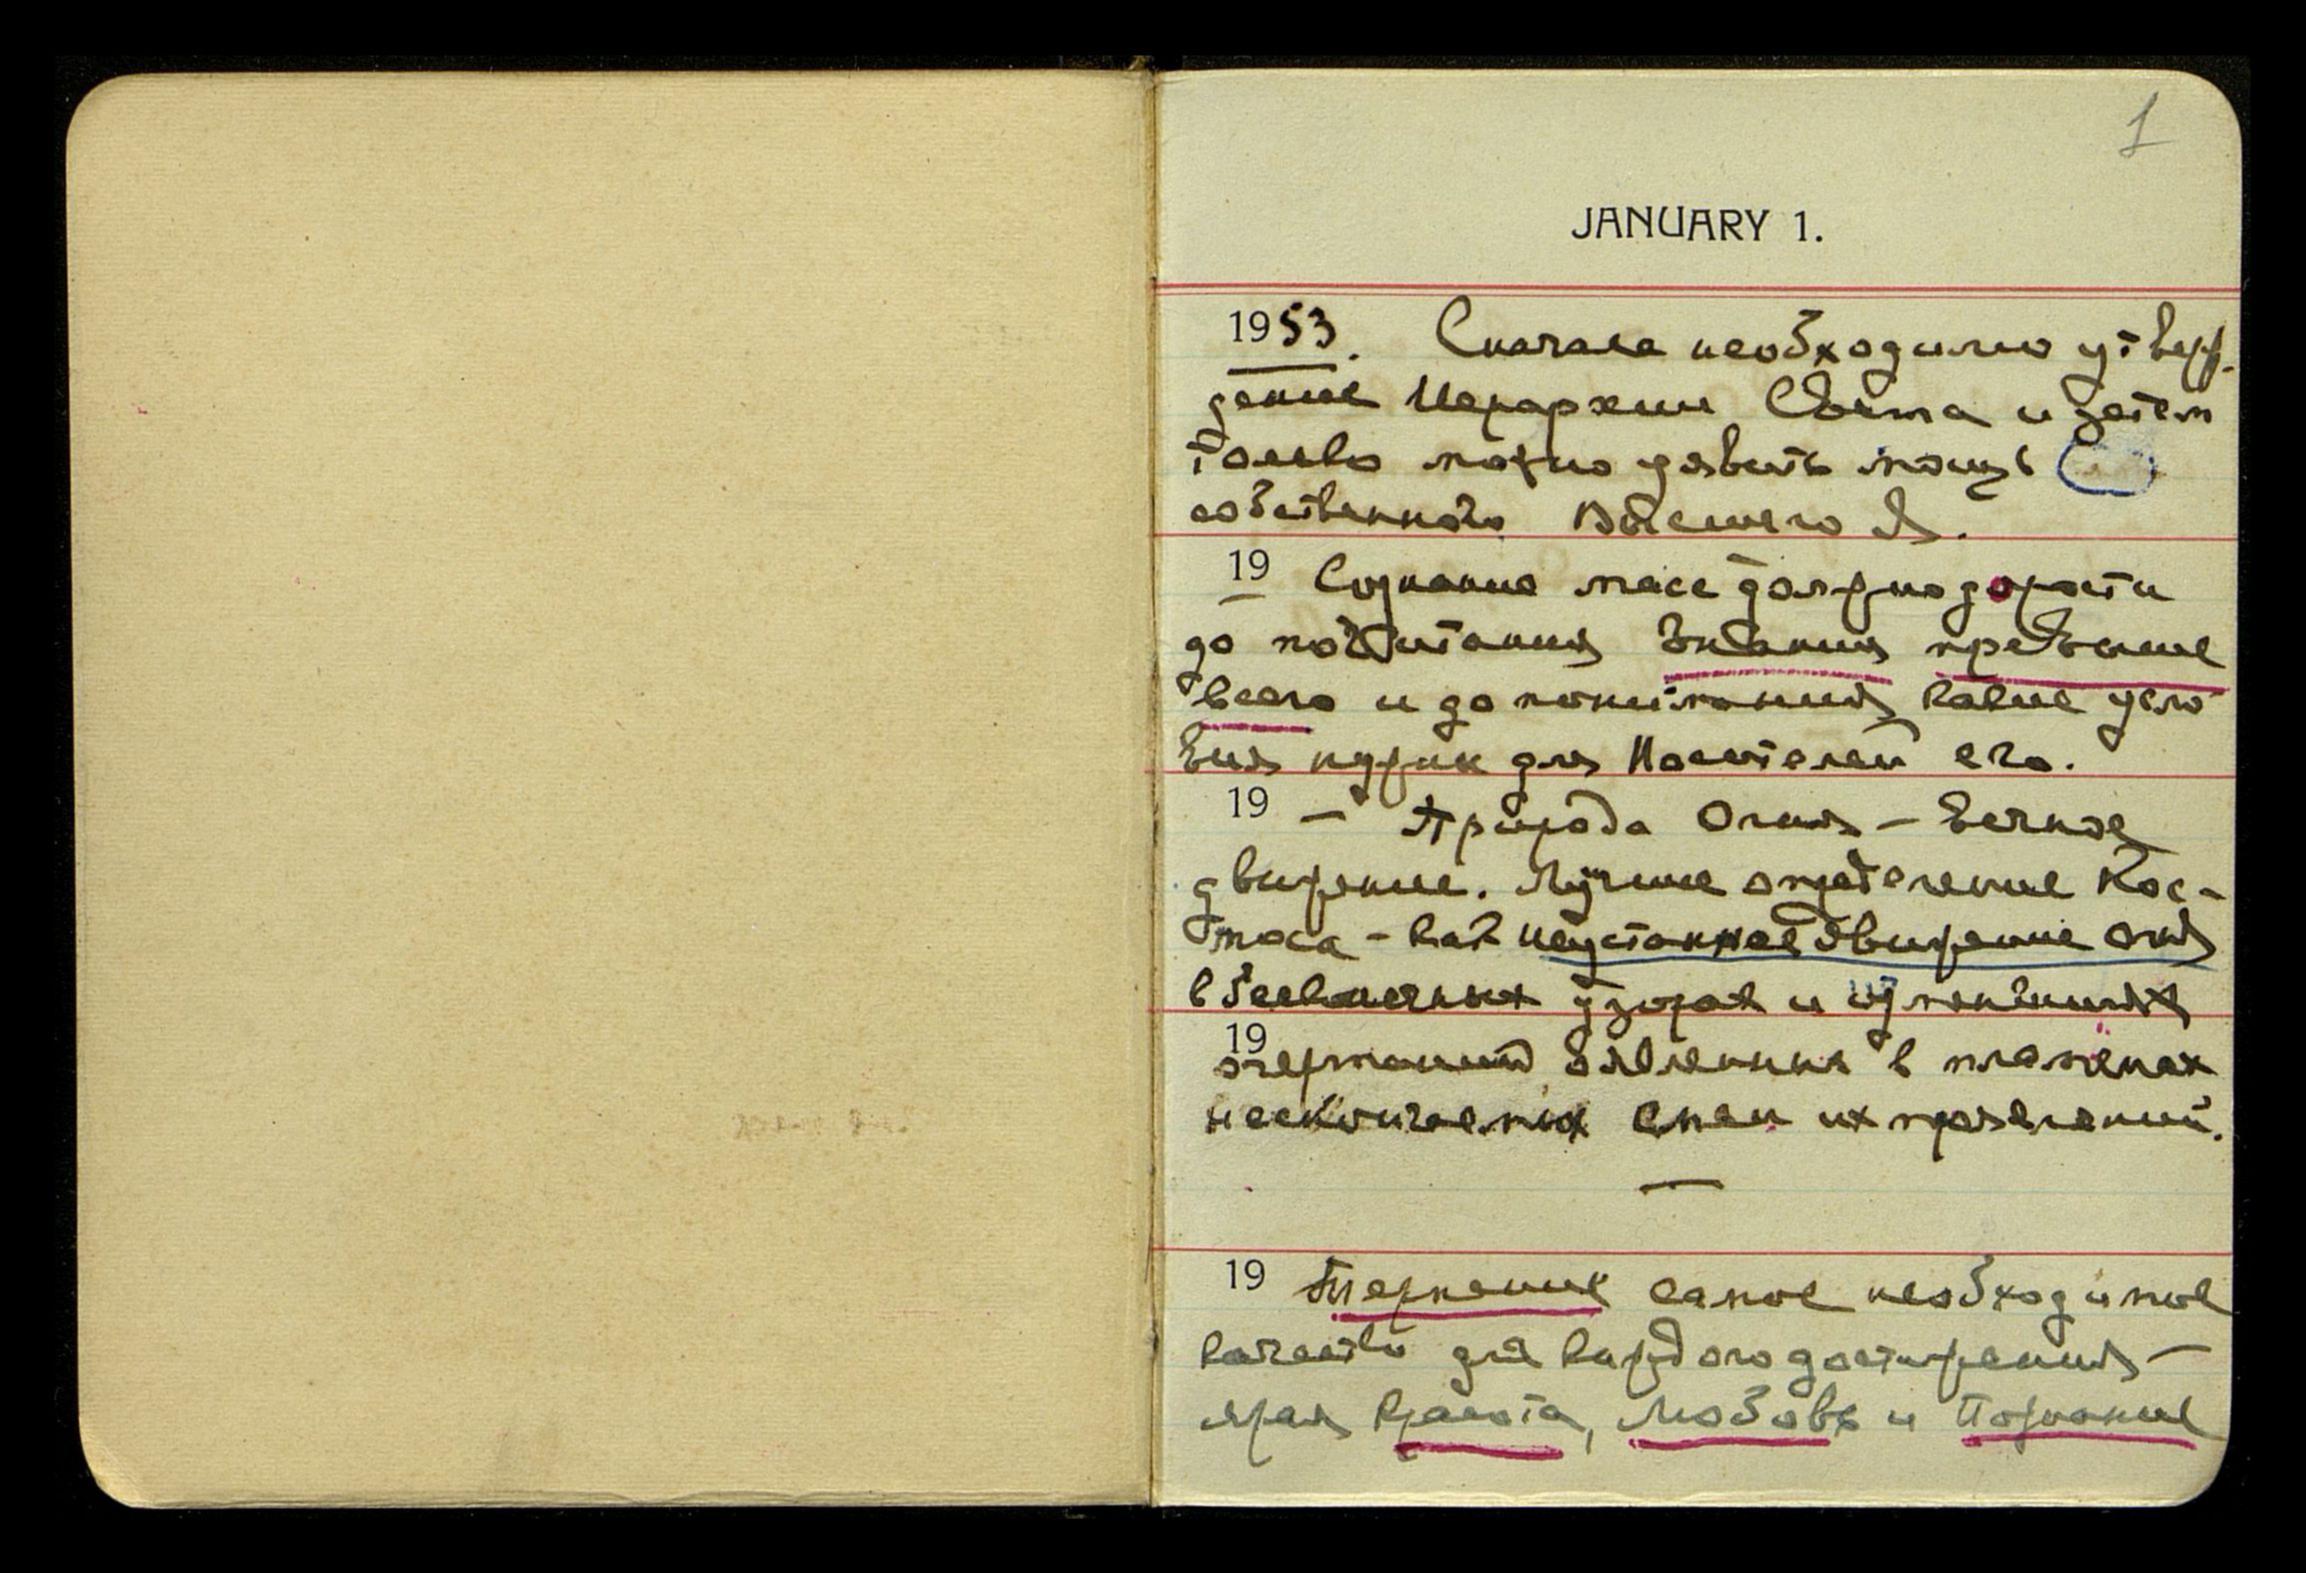 1
JANUARY 1.
1953. Сначала необходимо утверж-
дение Иерархии Света и затем
только можно удвоить мощь
собственного Высшего Я.
19 Сознание масс должно дорасти
до почитания Знания превыше
всего и до понимания какие усло
вия нужны для Носителей его.
19 – Природа Огня – Вечное
движение. Лучшее определение Кос-
моса – как неустанное движение Огня
в бесконечных узорах и
19
очертаний явленных в пламенах
нескончаемых смен их проявлений.
—
19 Терпение самое необходимое
качество для каждого достижения –
ярая Красота, Любовь и Познание